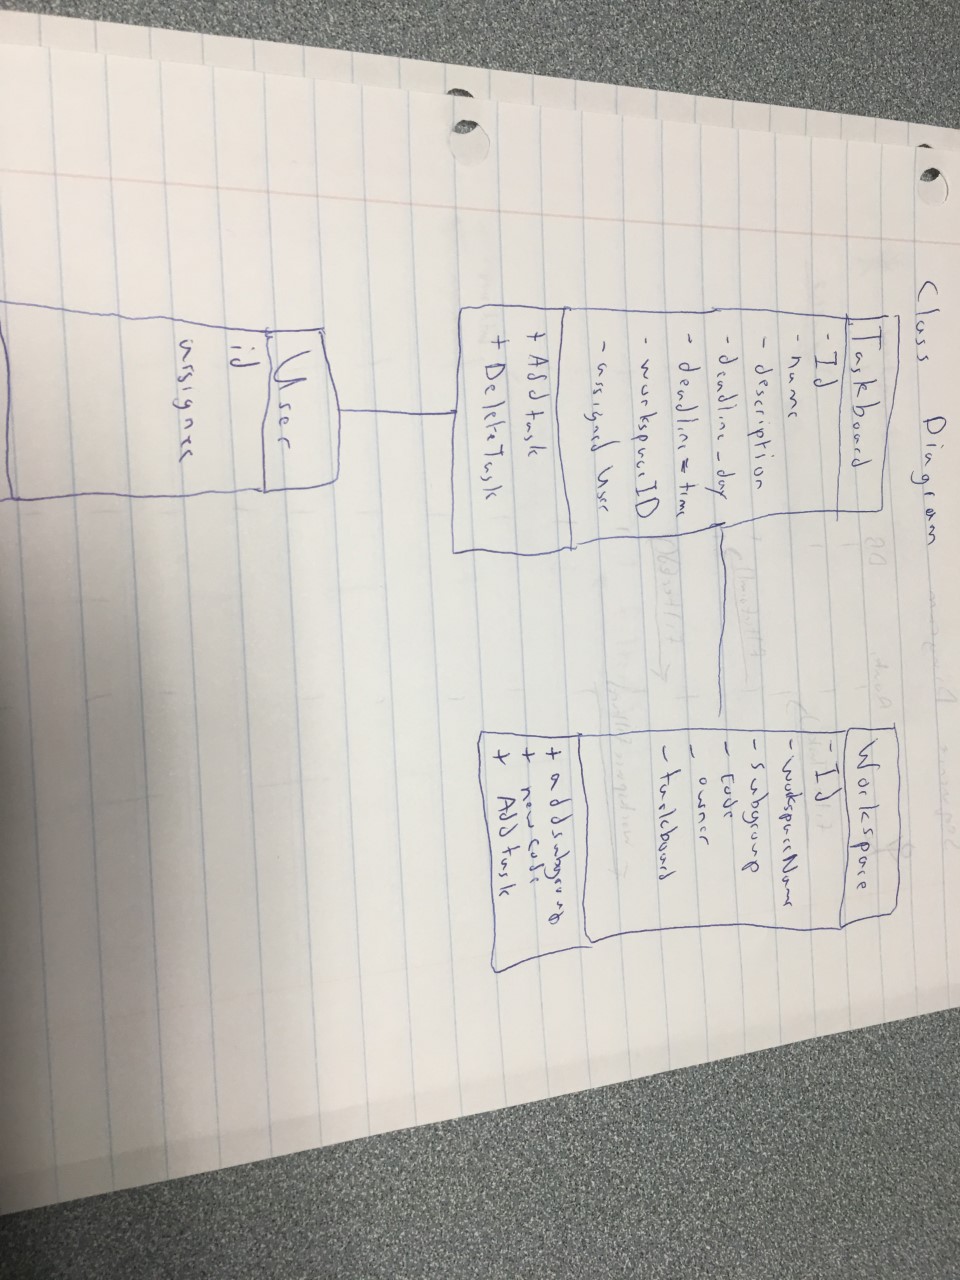 Class Diagram
Taskboard
- Id
- name
- description
- deadline_day
- deadline = time
- workspaceID
- assigned User
+ Add task
+ DeleteTask
Workspace
- Id
- workspaceName
- subgroup
- code
- owner
- taskboard
+ addsubgroup
+ newcode
+ Add task
User
id
assignee